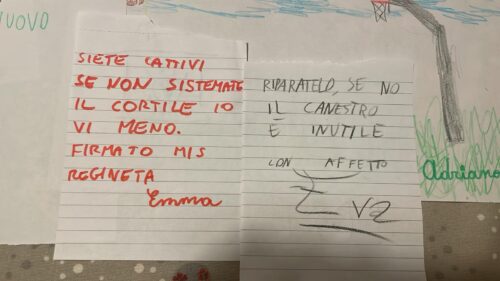 NUOVO
SIETE CATTIVI
SE NON SISTEMATE
IL CORTILE IO
VI MENO.
FIRMATO MIS
REGINETA
Emma
RIPARATELO, SE NO
IL CANESTRO
E INUTILE
CON AFFETTO
Adriano